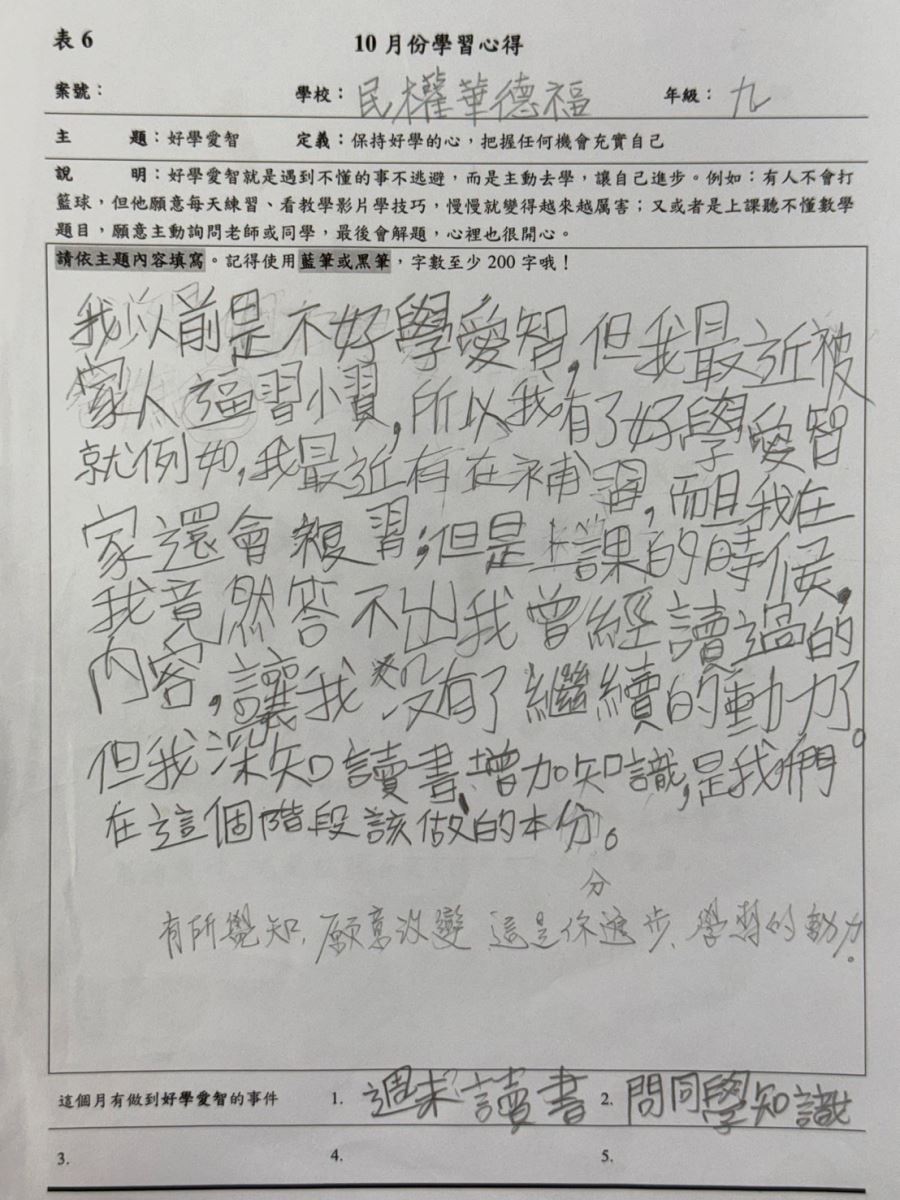 表 6
10 月份學習心得
案號： 學校：民權華德福 年級：九
主 題：好學愛智 定義：保持好學的心，把握任何機會充實自己
說 明：好學愛智就是遇到不懂的事不逃避，而是主動去學，讓自己進步。例如：有人不會打
籃球，但他願意每天練習、看教學影片學技巧，慢慢就變得越來越厲害；又或者是上課聽不懂數學
題目，願意主動詢問老師或同學，最後會解題，心裡也很開心。
請依主題內容填寫。記得使用藍筆或黑筆，字數至少 200 字哦！
我以前是不好學愛智，但我最近被
家人逼習小習，所以我有了好學愛智
就例如，我最近有在補習，而且我在
家還會複習；但是上課的時候，
我竟然答不出我曾經讀過的
內容，讓我沒有了繼續的動力了。
但我深知讀書、增加知識，是我們
在這個階段該做的本分。
分
有所覺知，願意改變 這是你進步、學習的動力。
這個月有做到好學愛智的事件 1. 週末讀書 2. 問同學知識
3. 4. 5.